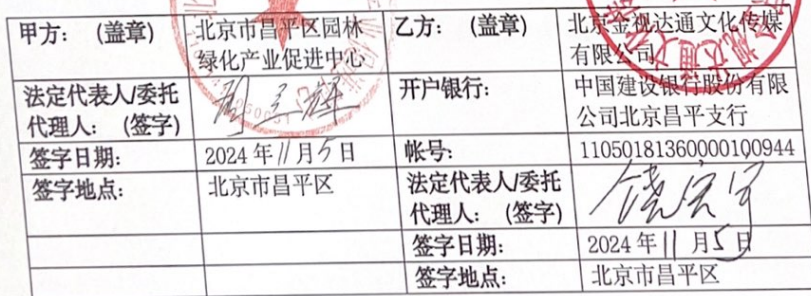 甲方：（盖章） 北京市昌平区园林 乙方：（盖章） 北京金视达通文化传媒
绿化产业促进中心 有限公司
法定代表人/委托 开户银行： 中国建设银行股份有限
代理人：（签字） 公司北京昌平支行
签字日期： 2024年11月5日 帐号： 11050181360000100944
签字地点： 北京市昌平区 法定代表人/委托
代理人：（签字）
签字日期： 2024年11月5日
签字地点： 北京市昌平区